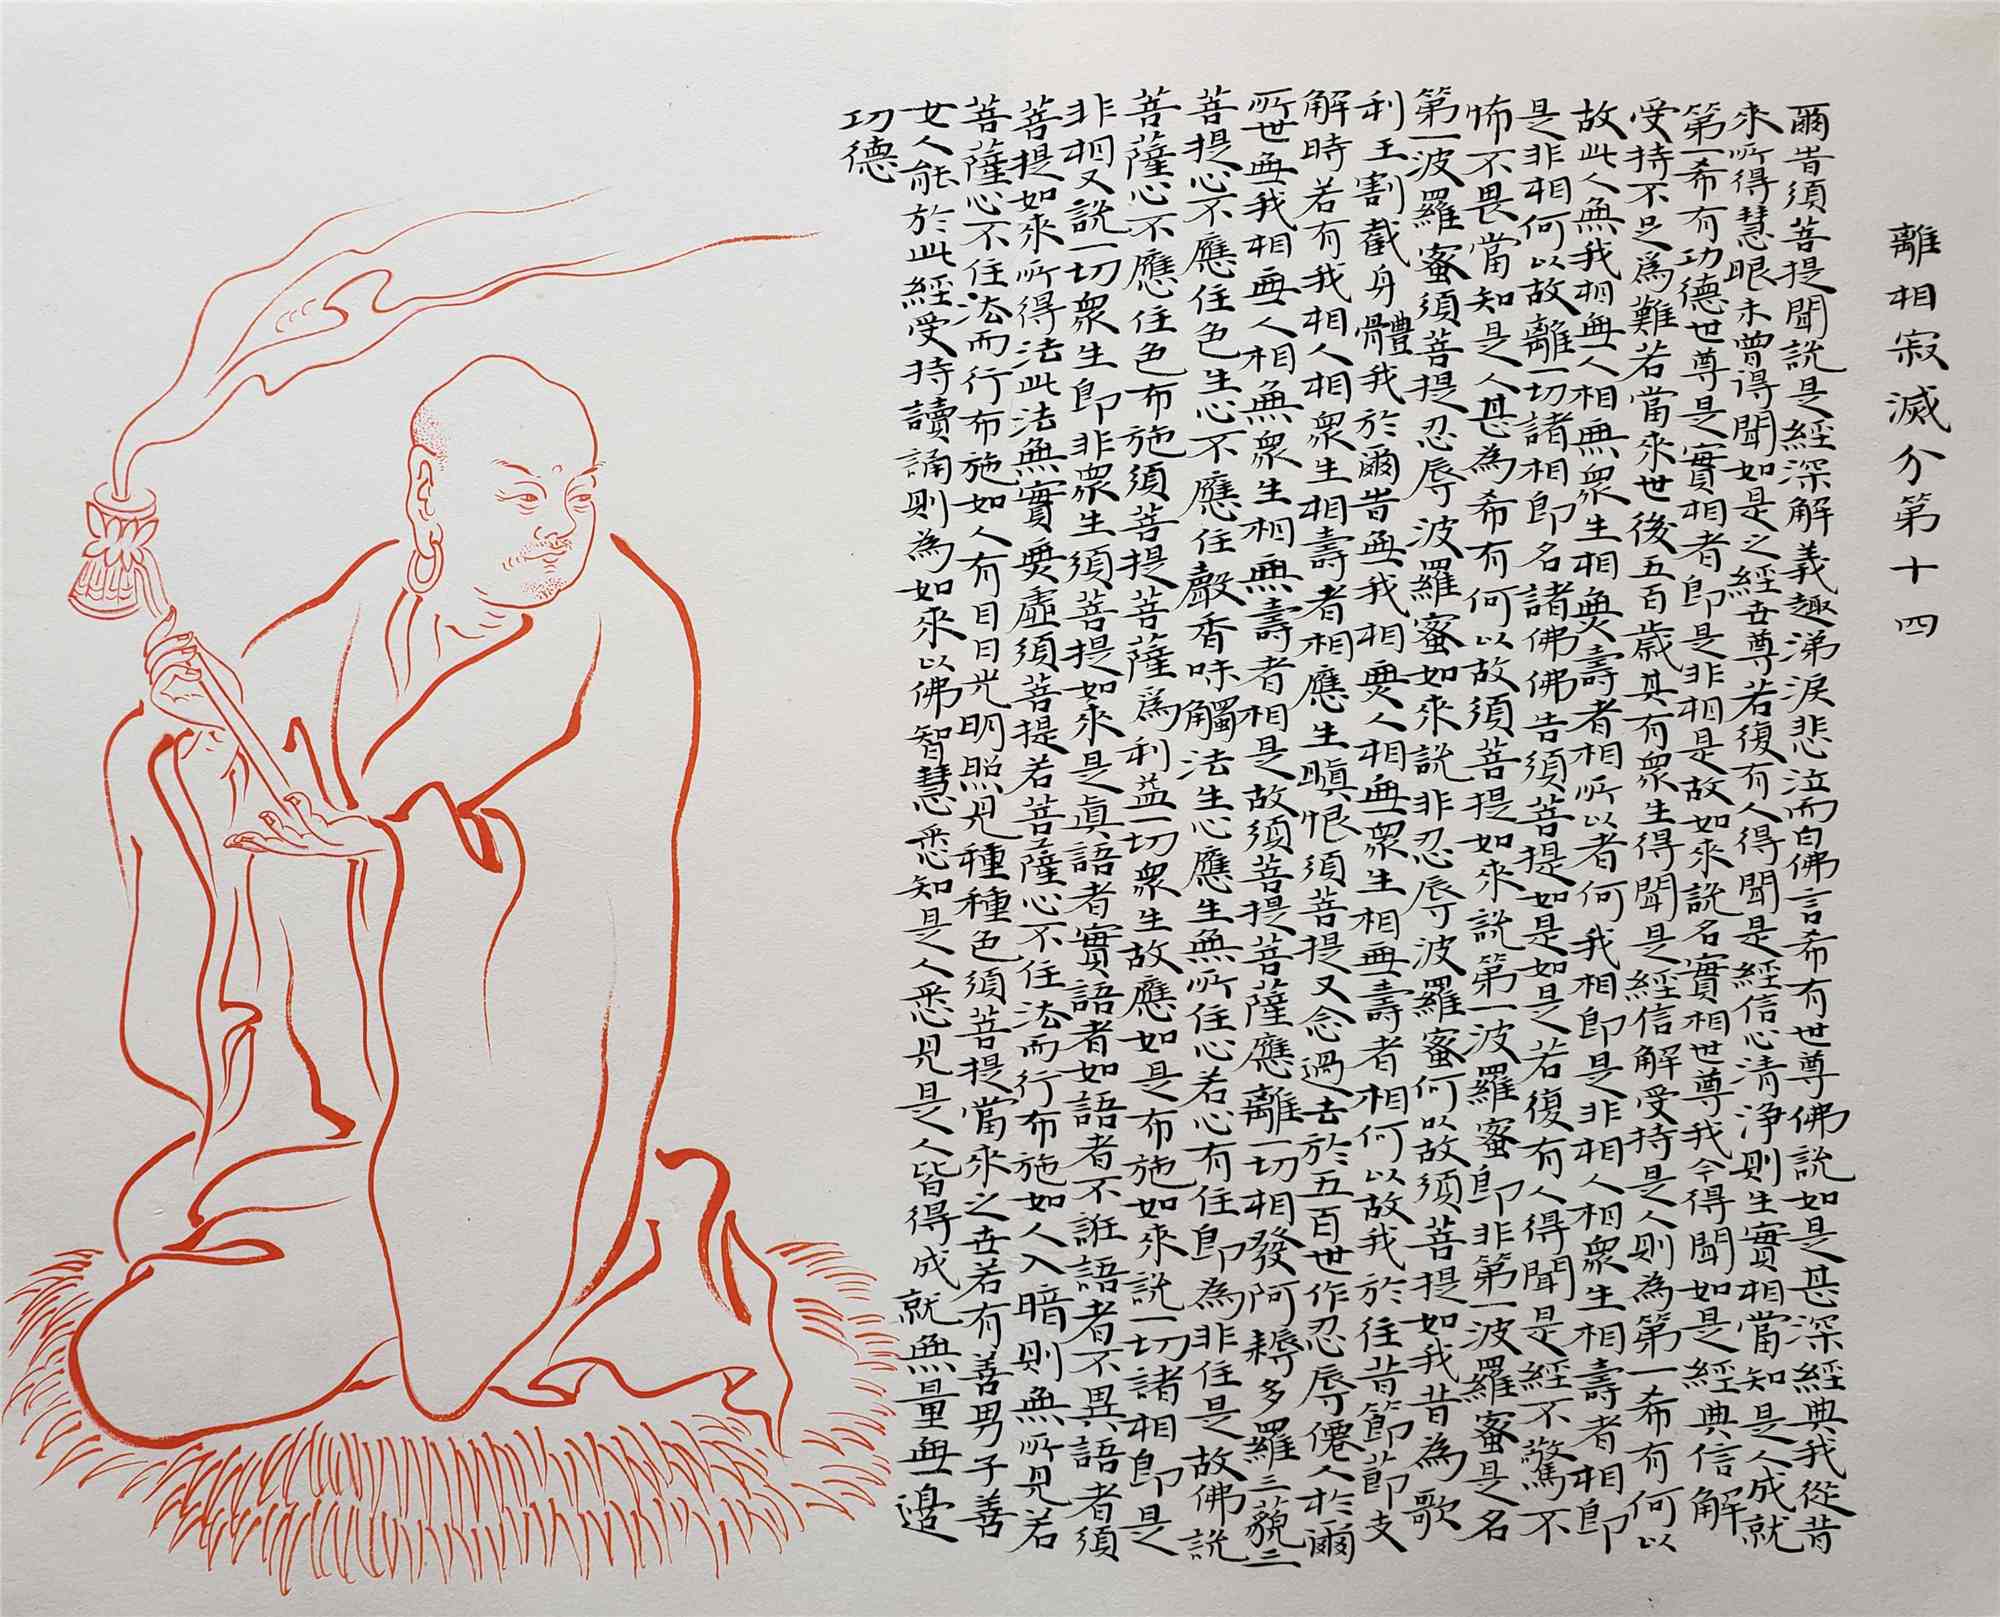 離相寂滅分第十四
爾旹須菩提聞說是經深解義趣涕淚悲泣而白佛言希有世尊佛說如是甚深經典我從昔
來所得慧眼未曾得聞如是之經世尊若復有人得聞是經信心清淨則生實相當知是人成就
第一希有功德世尊是實相者即是非相是故如來說名實相世尊我今得聞如是經典信解
受持不足為難若當來世後五百歲其有眾生得聞是經信解受持是人則為第一希有何以
故此人無我相無人相無眾生相無壽者相所以者何我相即是非相人相眾生相壽者相即
是非相何以故離一切諸相即名諸佛佛告須菩提如是如是若復有人得聞是經不驚不
怖不畏當知是人甚為希有何以故須菩提如來說第一波羅蜜即非第一波羅蜜是名
第一波羅蜜須菩提忍辱波羅蜜如來說非忍辱波羅蜜何以故須菩提如我昔為歌
利王割截身體我於爾旹無我相無人相無眾生相無壽者相何以故我於往昔節節支
解時若有我相人相眾生相壽者相應生瞋恨須菩提又念過去於五百世作忍辱僊人於爾
所世無我相無人相無眾生相無壽者相是故須菩提菩薩應離一切相發阿耨多羅三藐三
菩提心不應住色生心不應住聲香味觸法生心應生無所住心若心有住即為非住是故佛說
菩薩心不應住色布施須菩提菩薩為利益一切眾生故應如是布施如來說一切諸相即是
非相又說一切眾生即非眾生須菩提如來是真語者實語者如語者不誑語者不異語者須
菩提如來所得法此法無實無虛須菩提若菩薩心不住法而行布施如人入暗則無所見若
菩薩心不住法而行布施如人有目日光明照見種種色須菩提當來之世若有善男子善
女人能於此經受持讀誦則為如來以佛智慧悉知是人悉見是人皆得成就無量無邊
功德